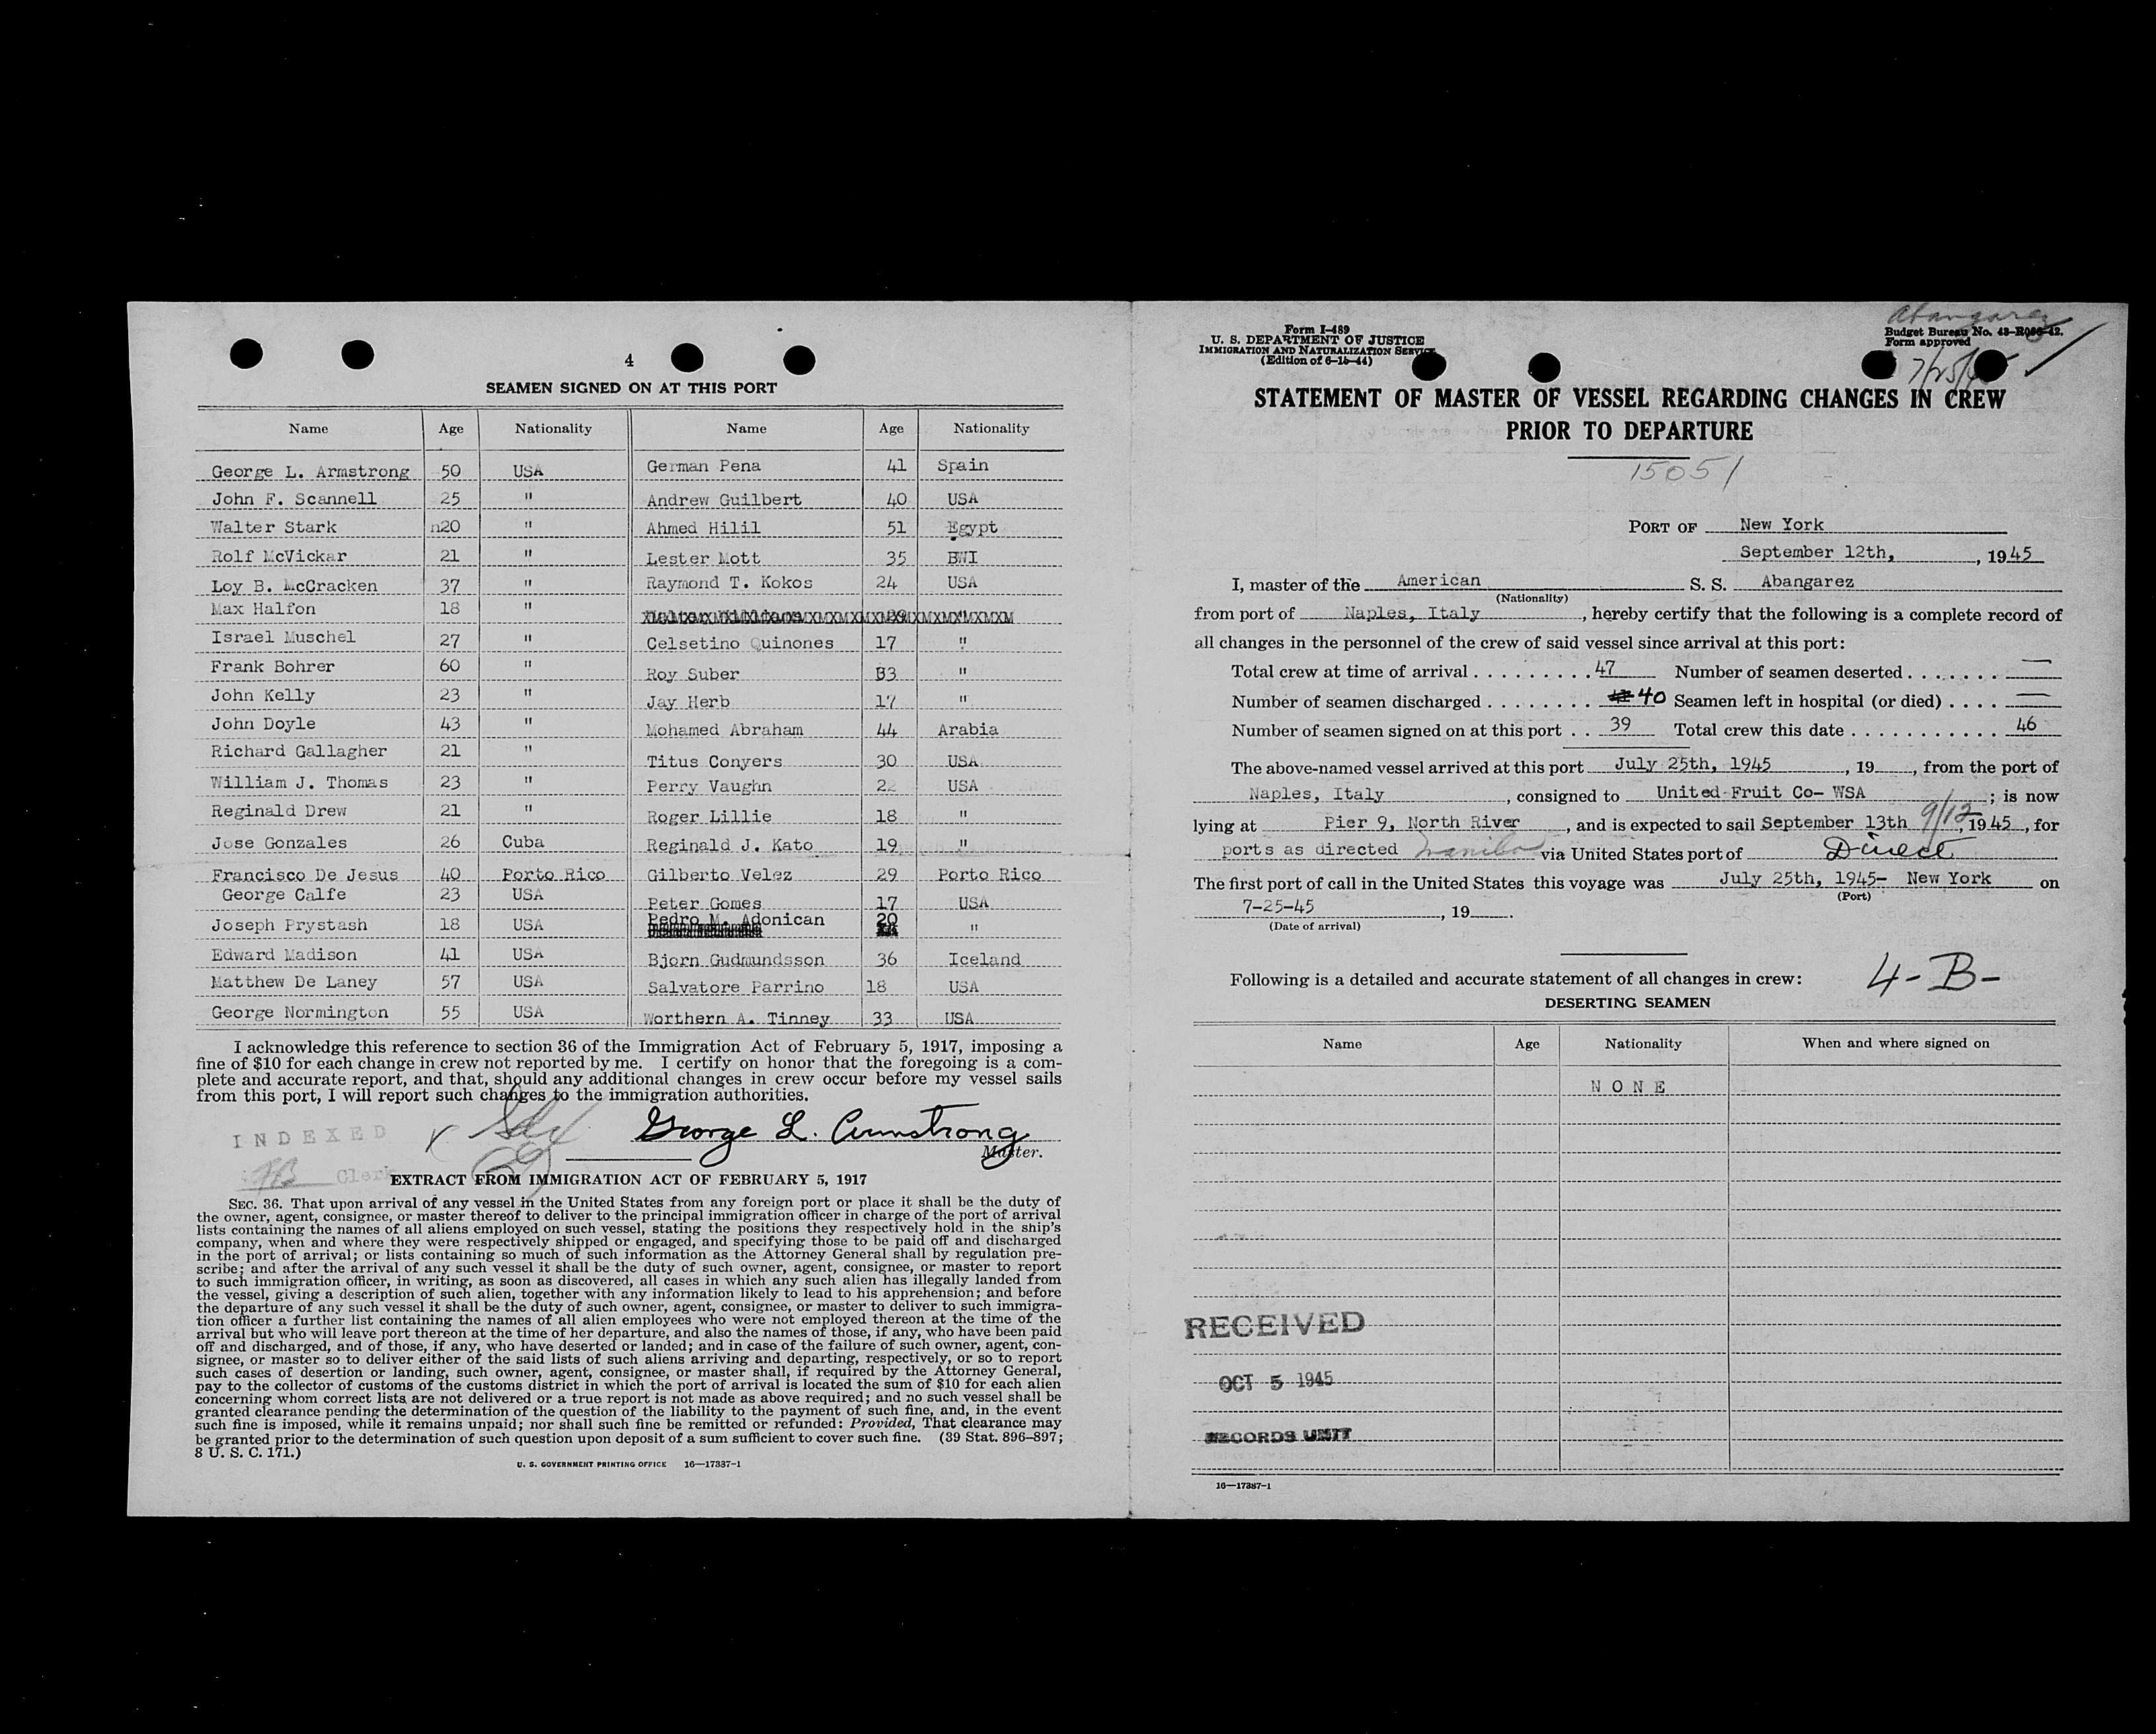 4
SEAMEN SIGNED ON AT THIS PORT
Name Age Nationality Name Age Nationality
George L. Armstrong 50 USA German Pena 41 Spain
John F. Scannell 25 " Andrew Guilbert 40 USA
Walter Stark n20 " Ahmed Hilil 51 Egypt
Rolf McVickar 21 " Lester Mott 35 BWI
Loy B. McCracken 37 " Raymond T. Kokos 24 USA
Max Halfon 18 "
Israel Muschel 27 " Celsetino Quinones 17 "
Frank Bohrer 60 " Roy Suber 33 "
John Kelly 23 " Jay Herb 17 "
John Doyle 43 " Mohamed Abraham 44 Arabia
Richard Gallagher 21 " Titus Conyers 30 USA
William J. Thomas 23 " Perry Vaughn 22 USA
Reginald Drew 21 " Roger Lillie 18 "
Jose Gonzales 26 Cuba Reginald J. Kato 19 "
Francisco De Jesus 40 Porto Rico Gilberto Velez 29 Porto Rico
George Calfe 23 USA Peter Gomes 17 USA
Joseph Prystash 18 USA Pedro M. Adonican 20 "
Edward Madison 41 USA Bjorn Gudmundsson 36 Iceland
Matthew De Laney 57 USA Salvatore Parrino 18 USA
George Normington 55 USA Worthern A. Tinney 33 USA
I acknowledge this reference to section 36 of the Immigration Act of February 5, 1917, imposing a
fine of $10 for each change in crew not reported by me. I certify on honor that the foregoing is a com-
plete and accurate report, and that, should any additional changes in crew occur before my vessel sails
from this port, I will report such changes to the immigration authorities.
INDEXED
George L. Armstrong
Master.
Clerk
EXTRACT FROM IMMIGRATION ACT OF FEBRUARY 5, 1917
SEC. 36. That upon arrival of any vessel in the United States from any foreign port or place it shall be the duty of
the owner, agent, consignee, or master thereof to deliver to the principal immigration officer in charge of the port of arrival
lists containing the names of all aliens employed on such vessel, stating the positions they respectively hold in the ship's
company, when and where they were respectively shipped or engaged, and specifying those to be paid off and discharged
in the port of arrival; or lists containing so much of such information as the Attorney General shall by regulation pre-
scribe; and after the arrival of any such vessel it shall be the duty of such owner, agent, consignee, or master to report
to such immigration officer, in writing, as soon as discovered, all cases in which any such alien has illegally landed from
the vessel, giving a description of such alien, together with any information likely to lead to his apprehension; and before
the departure of any such vessel it shall be the duty of such owner, agent, consignee, or master to deliver to such immigra-
tion officer a further list containing the names of all alien employees who were not employed thereon at the time of the
arrival but who will leave port thereon at the time of her departure, and also the names of those, if any, who have been paid
off and discharged, and of those, if any, who have deserted or landed; and in case of the failure of such owner, agent, con-
signee, or master so to deliver either of the said lists of such aliens arriving and departing, respectively, or so to report
such cases of desertion or landing, such owner, agent, consignee, or master shall, if required by the Attorney General,
pay to the collector of customs of the customs district in which the port of arrival is located the sum of $10 for each alien
concerning whom correct lists are not delivered or a true report is not made as above required; and no such vessel shall be
granted clearance pending the determination of the question of the liability to the payment of such fine, and, in the event
such fine is imposed, while it remains unpaid; nor shall such fine be remitted or refunded: Provided, That clearance may
be granted prior to the determination of such question upon deposit of a sum sufficient to cover such fine. (39 Stat. 896–897;
8 U. S. C. 171.)
U. S. GOVERNMENT PRINTING OFFICE 16—17387-1
Abangarez
Form I-489
U. S. DEPARTMENT OF JUSTICE
IMMIGRATION AND NATURALIZATION SERVICE
(Edition of 6-15-44)
Budget Bureau No. 43-R066-42.
Form approved
7/25/45
STATEMENT OF MASTER OF VESSEL REGARDING CHANGES IN CREW
PRIOR TO DEPARTURE
15051
PORT OF New York
September 12th, , 1945
I, master of the American S. S. Abangarez
(Nationality)
from port of Naples, Italy , hereby certify that the following is a complete record of
all changes in the personnel of the crew of said vessel since arrival at this port:
Total crew at time of arrival . . . . . . . . . 47 Number of seamen deserted . . . . . . . —
Number of seamen discharged . . . . . . . . 40 Seamen left in hospital (or died) . . . . —
Number of seamen signed on at this port . . 39 Total crew this date . . . . . . . . . . . . 46
The above-named vessel arrived at this port July 25th, 1945 , 19 , from the port of
Naples, Italy , consigned to United Fruit Co- WSA ; is now
lying at Pier 9, North River , and is expected to sail September 13th 9/12, 1945 , for
ports as directed Manila via United States port of Direct
The first port of call in the United States this voyage was July 25th, 1945- New York on
(Port)
7-25-45 , 19 .
(Date of arrival)
Following is a detailed and accurate statement of all changes in crew: 4-B-
DESERTING SEAMEN
Name Age Nationality When and where signed on
NONE
RECEIVED
OCT 5 1945
RECORDS UNIT
16—17387-1